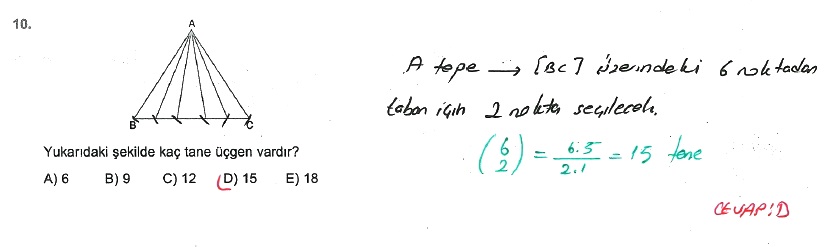 10.
A
B
C
Yukarıdaki şekilde kaç tane üçgen vardır?
A) 6 B) 9 C) 12 D) 15 E) 18
A tepe → [BC] üzerindeki 6 noktadan
taban için 2 nokta seçilecek.
(6 2) = 6.5 / 2.1 = 15 tane
CEVAP: D